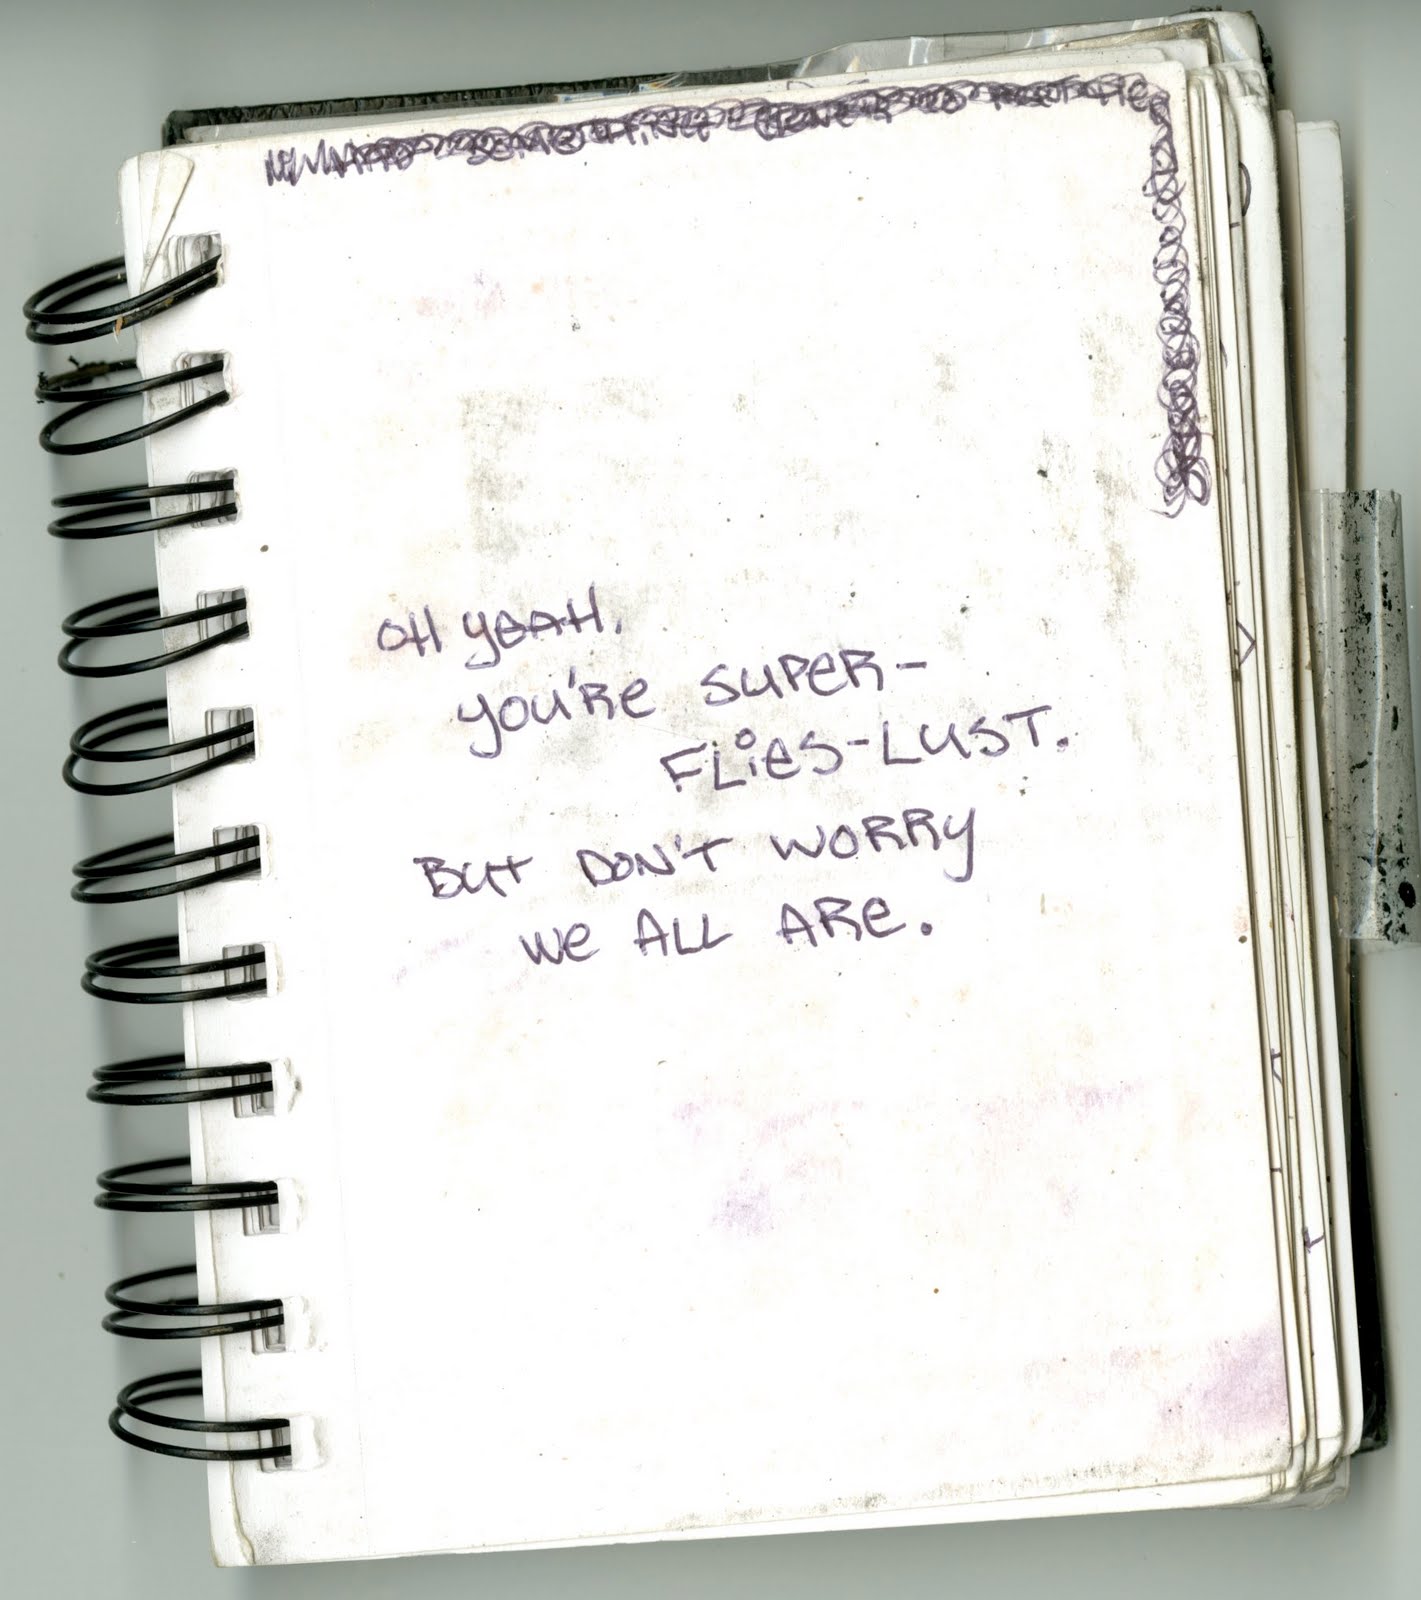 OH YEAH.
YOU'RE SUPER-
FLIES-LUST.
BUT DON'T WORRY
WE ALL ARE.